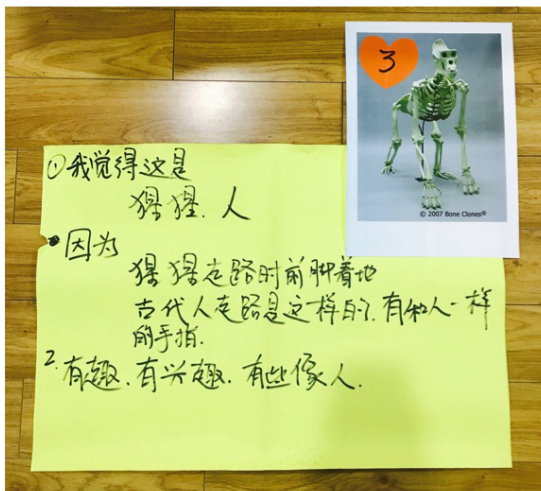 3
© 2007 Bone Clones®
①我觉得这是
猩猩、人
因为
猩猩走路时前脚着地
古代人走路是这样的、有和人一样
的手指.
2.有趣、有兴趣、有些像人.